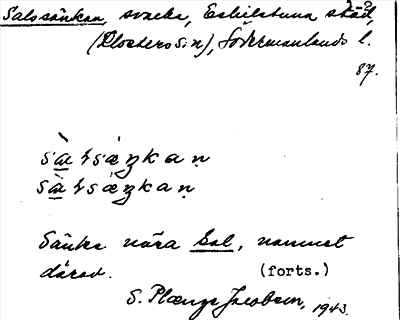 Salssänkan, svacka, Eskilstuna stad,
(Klosters sn), Södermanlands l.
87.
Sänka nära Sal, namnet
därav. (forts.)
S. Plænge Jacobson, 1943.